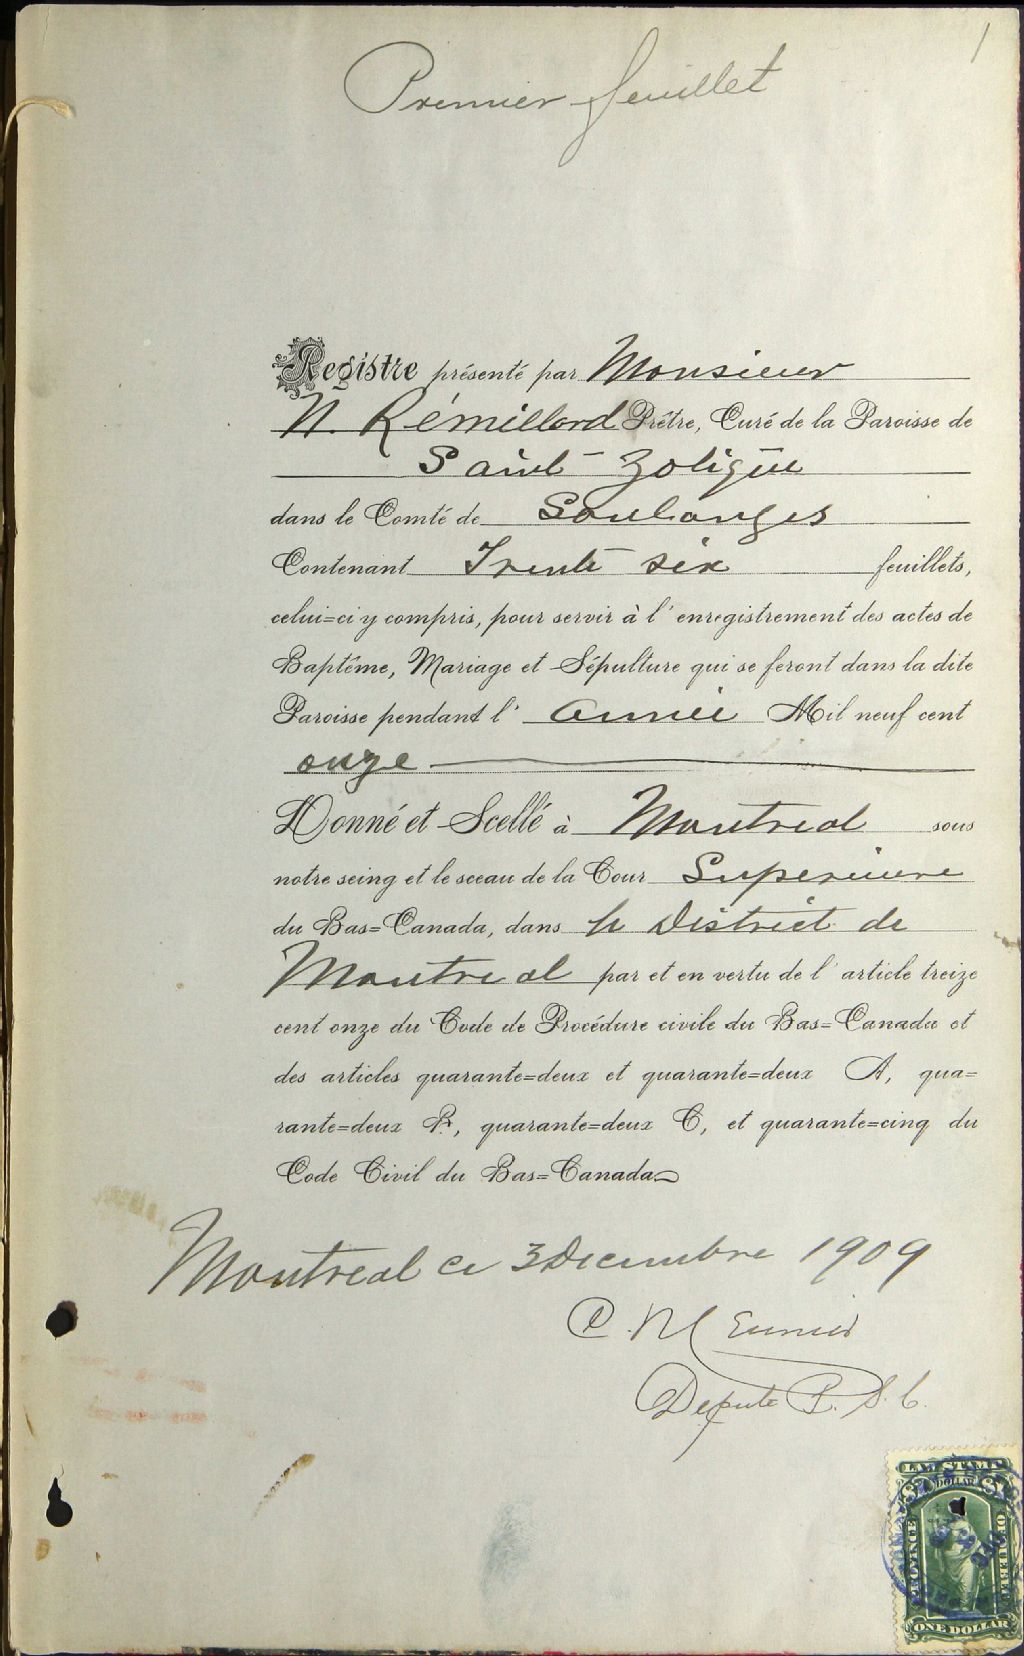 1
Premier feuillet
Registre présenté par Monsieur
N. Rémillard Prêtre, Curé de la Paroisse de
Saint-Zotique
dans le Comté de Soulanges
Contenant Trente six feuillets,
celui=ci y compris, pour servir à l'enregistrement des actes de
Baptême, Mariage et Sépulture qui se feront dans la dite
Paroisse pendant l' année Mil neuf cent
onze
Donné et Scellé à Montreal sous
notre seing et le sceau de la Cour Superieure
du Bas=Canada, dans le District de
Montreal par et en vertu de l'article treize
cent onze du Code de Procédure civile du Bas=Canada et
des articles quarante=deux et quarante=deux A, qua=
rante=deux B, quarante=deux C, et quarante=cinq du
Code Civil du Bas=Canada
Montreal ce 3 Decembre 1909
C. Meunier
Depute P. S. C.
LAW STAMP
$1 DOLLAR $1
PROVINCE OF QUEBEC
ONE DOLLAR